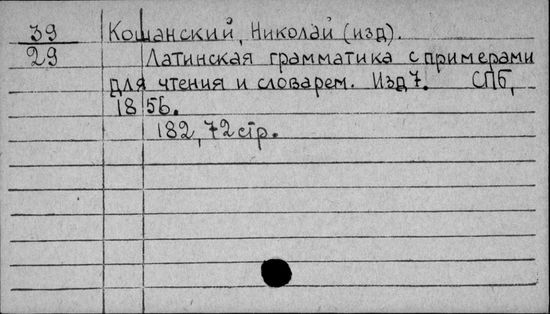 39 Кошанский, Николай (изд).
29 Латинская грамматика с примерами
для чтения и словарем. Изд 7. СПб,
1856.
182, 72 стр.